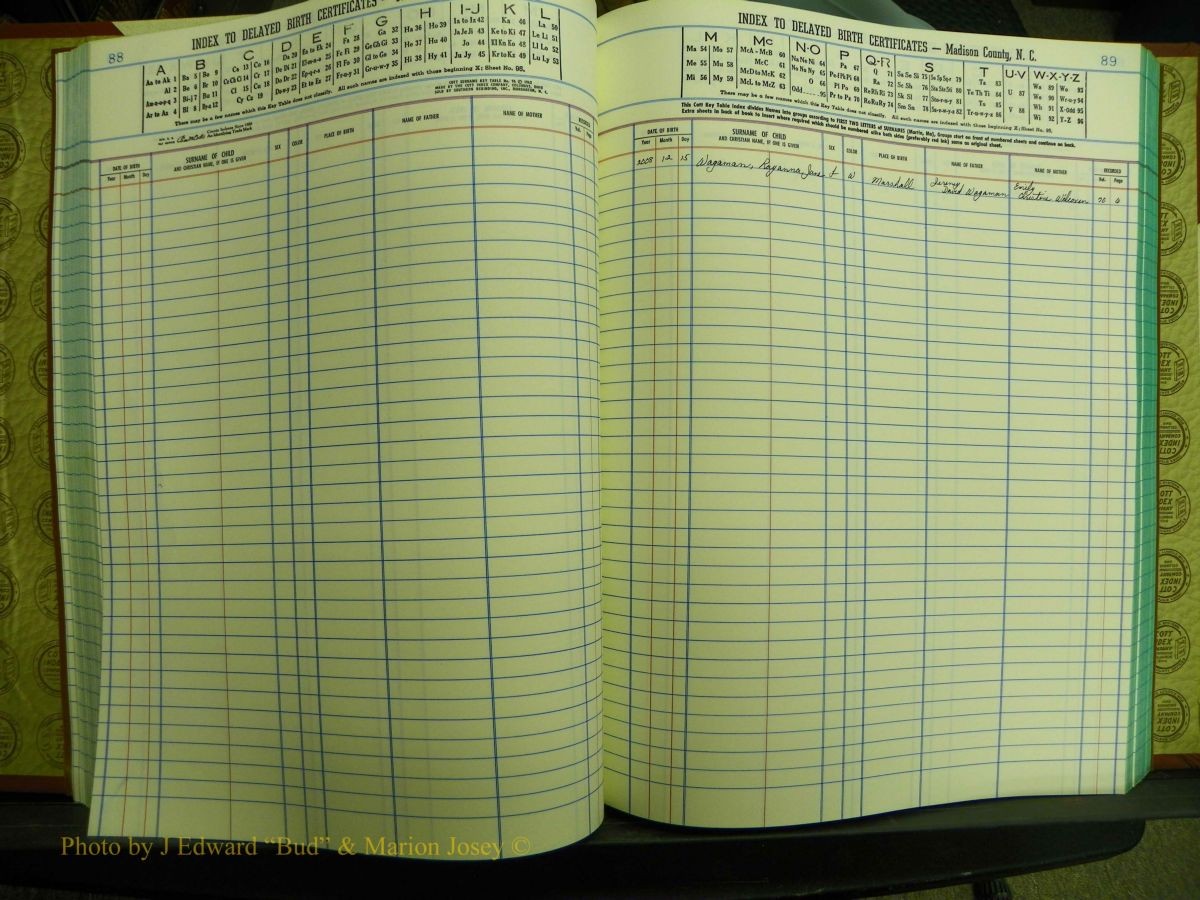 88
INDEX TO DELAYED BIRTH CERTIFICATES
A B C D E F G H I-J K L
Aa to Ak 1 Ba 5 Be 9 Ca 13 Co 16 Da 20 Ea to Ek 24 Fa 28 Ga 32 Ha 36 Ho 39 Ia to Iz 42 Ka 46 La 50
Al 2 Be 6 Br 10 Ce Ch Ci 14 Cr 17 De Di 21 El-m-n-o 25 Fe Fi 29 Ge Gh Gi 33 Ho 37 Hu 40 Ja Je Ji 43 Ke to Ki 47 Le Li 51
Am-o-p-q 3 Bi-j 7 Bu 11 Cl 15 Cu 18 Do Dr 22 Ep-q-r-s 26 Fl Fo 30 Gl to Go 34 Hi 38 Hy 41 Jo 44 Kl Kn Ko 48 Ll Lo 52
Ar to Az 4 Bl 8 Bya 12 Cy Cz 19 Du-y-z 23 Et to Ez 27 Fr-u-y 31 Gr-u-w-y 35 Ju Jy 45 Kr to Kz 49 Lu Ly 53
There may be a few names which this Key Table does not classify. All such names are indexed with those beginning X; Sheet No. 95.
COTT SURNAME KEY TABLE
MADE BY THE COTT INDEX COMPANY, COLUMBUS, OHIO
SOLD BY
County Indexes Since 1888
DATE OF BIRTH SURNAME OF CHILD SEX COLOR PLACE OF BIRTH NAME OF FATHER NAME OF MOTHER RECORDED
Year Month Day AND CHRISTIAN NAME, IF ONE IS GIVEN Vol. Page
INDEX TO DELAYED BIRTH CERTIFICATES — Madison County, N. C. 89
M Mc N-O P Q-R S T U-V W-X-Y-Z
Ma 54 Mo 57 McA - McB 60 Na Ne Ni 64 Pa 67 Q 71 Sa Sc Si 75 So Sp Sq 79 Ta 83 U 87 Wa 89 Wo 93
Me 55 Mu 58 McC 61 No Nu Ny 65 Pe Ph Pi 68 Ra 72 Se Sh 76 Sta Ste Sti 80 Te Th Ti 84 V 88 We 90 Wr-u-y 94
Mi 56 My 59 McD to McK 62 O 66 Pl Po 69 Re Rh Ri 73 Sk Sl 77 Sto-r-u-y 81 To 85 Wh 91 X-Odd 95
McL to McZ 63 Odd 95 Pr to Pz 70 Ro Ru Ry 74 Sm Sn 78 Su-v-w-y-z 82 Tr-u-w-y-z 86 Wi 92 Y-Z 96
There may be a few names which this Key Table does not classify. All such names are indexed with those beginning X; Sheet No. 95.
This Cott Key Table Index divides Names into groups according to FIRST TWO LETTERS of SURNAMES (Martin, Ma). Groups start on front of numbered sheets and continue on back.
Extra sheets in back of book to insert where required which should be numbered alike both sides (preferably red ink) same as original sheet.
DATE OF BIRTH SURNAME OF CHILD SEX COLOR PLACE OF BIRTH NAME OF FATHER NAME OF MOTHER RECORDED
Year Month Day AND CHRISTIAN NAME, IF ONE IS GIVEN Vol. Page
2008 12 15 Wagaman, Rayanna Jane f W Marshall Jeremy David Wagaman Emily Christine
Photo by J Edward "Bud" & Marion Josey ©